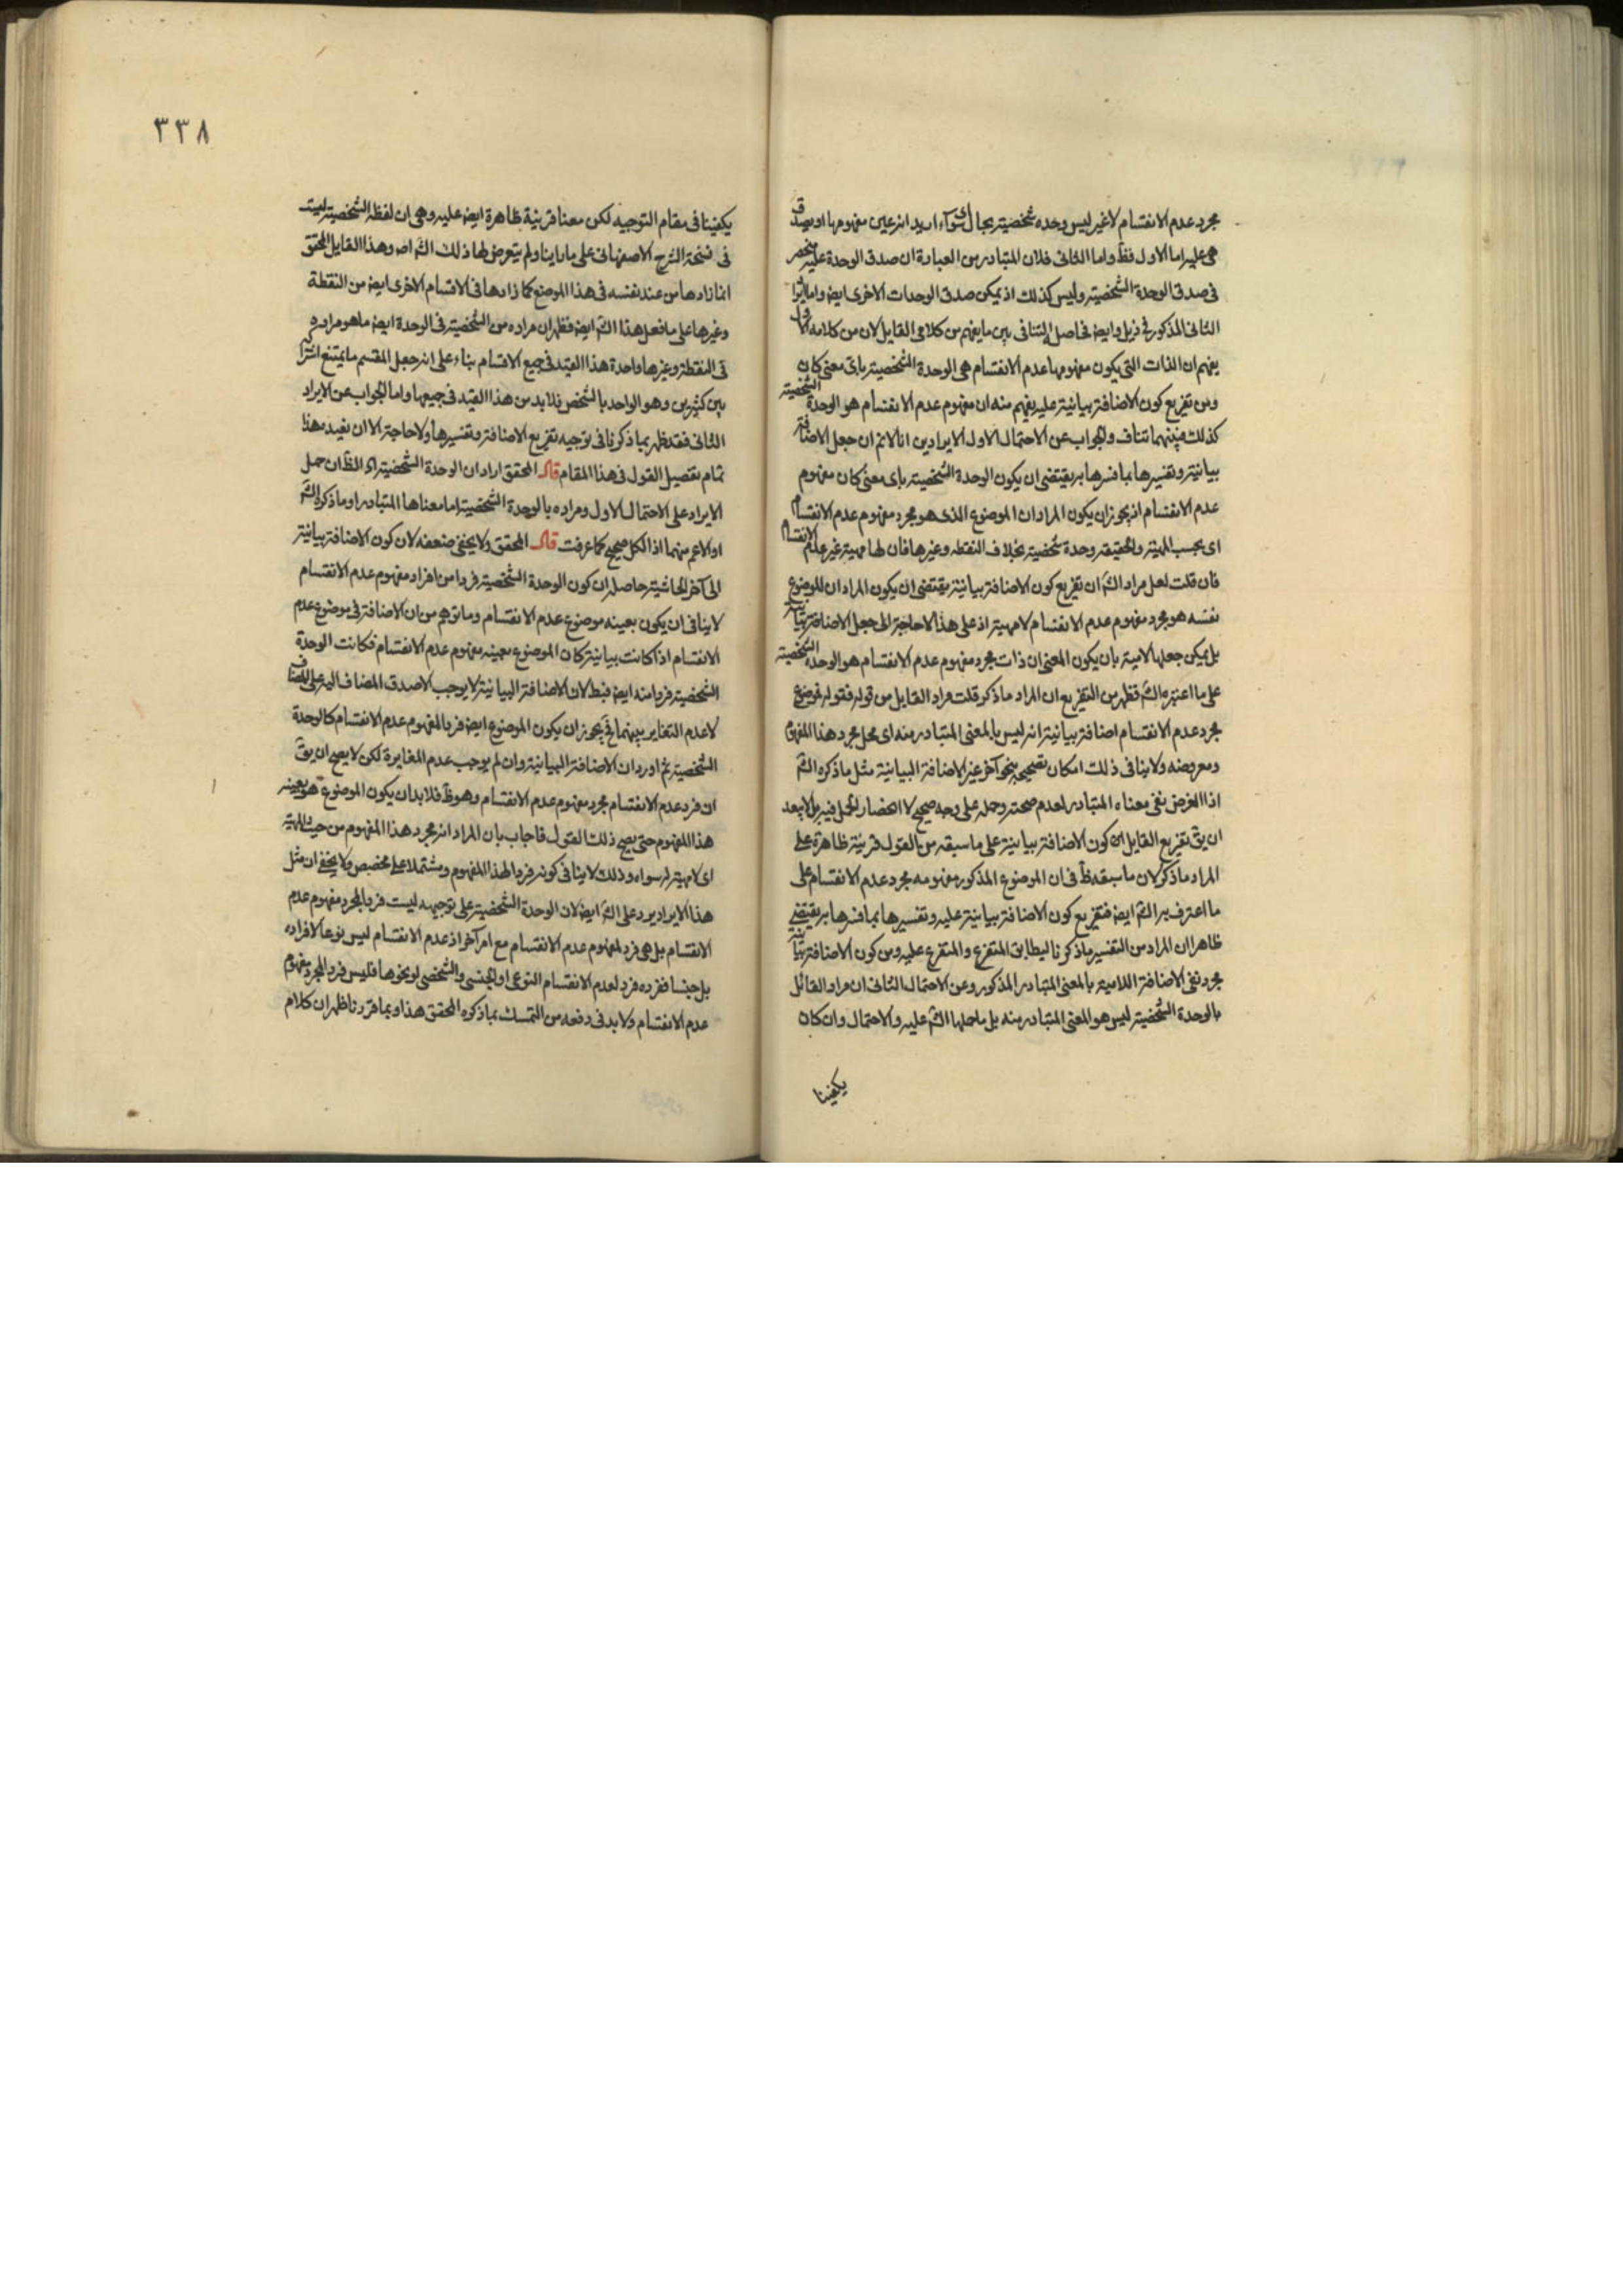 مجرد عدم الانقسام لاغير ليس وحده شخصية بحال سوآء اريد انه عين مفهومها او يصدق
هى عليه اما الاول فظ واما الثانى فلان المتبادر من العبارة ان صدق الوحدة عليه منحصر
فى صدق الوحدة الشخصية وليس كذلك اذ يمكن صدق الوحدات الاخرى ايض واما
الثانى المذكور فى ذيل وايض فحاصل التنافى بين ما يفهم من كلامى القايل لان من كلامه الاول
يفهم ان الذات التى يكون مفهومها عدم الانقسام هى الوحدة الشخصية باى معنى كان
ومن تفريع كون الاضافة بيانية عليه يفهم منه ان مفهوم عدم الانقسام هو الوحدة الشخصية
كذلك فبينهما تناف والجواب عن الاحتمال الاول الايرادين انا لانم ان جعل الاضافة
بيانية وتفسيرها بما فسرها به يقتضى ان يكون الوحدة الشخصية باى معنى كان مفهوم
عدم الانقسام اذ يجوز ان يكون المراد ان الموضوع الذى هو مجرد مفهوم عدم الانقسام
اى بحسب المهية والحقيقة وحدة شخصية بخلاف النقطه وغيرها فان لها مهية غير عدم الانقسام
فان قلت لعل مراد الش ان تفريع كون الاضافة بيانية يقتضى ان يكون المراد ان الموضوع
نفسه هو مجرد مفهوم عدم الانقسام لا مهيته اذ على هذا لاحاجة الى جعل الاضافة بيانية
بل يمكن جعلها لامية بان يكون المعنى ان ذات مجرد مفهوم عدم الانقسام هو الوحدة الشخصية
على ما اعتبره الش فظهر من التفريع ان المراد ما ذكر قلت مراد القايل من قوله فقوله موضوع
مجرد عدم الانقسام اضافة بيانية انه ليس بالمعنى المتبادر منه اى محل مجرد هذا المفهوم
ومعروضه ولا ينافى ذلك امكان تصحيحه بنحو آخر غير الاضافة البيانية مثل ما ذكره الش
اذا الغرض نفى معناه المتبادر لعدم صحته وحمله على وجه صحيح لا انحصار المحمل فيه بل لا يبعد
ان يق تفريع القايل كون الاضافة بيانية على ما سبقه من القول قرينة ظاهرة على
المراد ما ذكر لان ما سبقه ظ فى ان الموضوع المذكور مفهومه مجرد عدم الانقسام على
ما اعترف به الش ايض فتفريع كون الاضافة بيانية عليه وتفسيرها بما فسرها به يقتضى
ظاهرا ان المراد من التفسير ما ذكرنا ليطابق المتفرع والمتفرع عليه ومن كون الاضافة بيانية
مجرد نفى الاضافة اللامية بالمعنى المتبادر المذكور وعن الاحتمال الثانى ان مراد القائل
بالوحدة الشخصية ليس هو المعنى المتبادر منه بل ما حملها الش عليه والاحتمال وان كان
يكفينا
٣٣٨
يكفينا فى مقام التوجيه لكن معنا قرينة ظاهرة ايض عليه وهى ان لفظة الشخصية ليست
فى نسخة الشرح الاصفهانى على ما راينا ولم يتعرض لها ذلك الش اص وهذا القايل المحقق
انما زادها من عند نفسه فى هذا الموضع كما زادها فى الاقسام الاخرى ايض من النقطة
وغيرها على ما فعل هذا الش ايض فظهر ان مراده من الشخصية فى الوحدة ايض ما هو مراده
فى النقطة وغيرها واحدة هذا القيد فى جميع الاقسام بناء على انه جعل المقسم ما يمتنع اشتراكه
بين كثيرين وهو الواحد بالشخص فلا بد من هذا القيد فى جميعها واما الجواب عن الايراد
الثانى فقد ظهر بما ذكرنا فى توجيه تفريع الاضافة وتفسيرها ولا حاجة الا ان نعيد هذا
تمام تفصيل القول فى هذا المقام قال المحقق اراد ان الوحدة الشخصية الظ ان حمل
الايراد على الاحتمال الاول ومراده بالوحدة الشخصية اما معناها المتبادر او ما ذكره الش
او الاعم منهما اذا الكل صحيح كما عرفت قال المحقق ولا يخفى ضعفه لان كون الاضافة بيانية
الى آخر الحاشية حاصله ان كون الوحدة الشخصية فردا من افراد مفهوم عدم الانقسام
لا ينافى ان يكون بعينه موضوع عدم الانقسام وما توهم من ان الاضافة فى موضوع عدم
الانقسام اذا كانت بيانية كان الموضوع بعينه مفهوم عدم الانقسام فكانت الوحدة
الشخصية فردا منه ايض فبط لان الاضافة البيانية لا يوجب الا صدق المضاف اليه على المضاف
لا عدم التغاير بينهما فح يجوز ان يكون الموضوع ايض فردا لمفهوم عدم الانقسام كالوحدة
الشخصية ثم اورد ان الاضافة البيانية وان لم يوجب عدم المغايرة لكن لا يصح ان يق
ان فرد عدم الانقسام مجرد مفهوم عدم الانقسام وهو ظ فلا بد ان يكون الموضوع هو بعينه
هذا المفهوم حتى يصح ذلك القول فاجاب بان المراد انه مجرد هذا المفهوم من حيث المهية
اى لا مهية له سواه وذلك لا ينافى كونه فردا لهذا المفهوم ومشتملا على مخصص ولا يخفى ان مثل
هذا الايراد يرد على الش ايض لان الوحدة الشخصية على توجيهه ليست فردا لمجرد مفهوم عدم
الانقسام بل هى فرد لمفهوم عدم الانقسام مع امر آخر اذ عدم الانقسام ليس نوعا لافراده
بل جنسا ففرده فرد لعدم الانقسام النوعى او الجنسى والشخصى او نحوها فليس فردا لمجرد مفهوم
عدم الانقسام ولا بد فى دفعه من التمسك بما ذكره المحقق هذا وبما قررنا ظهر ان كلام